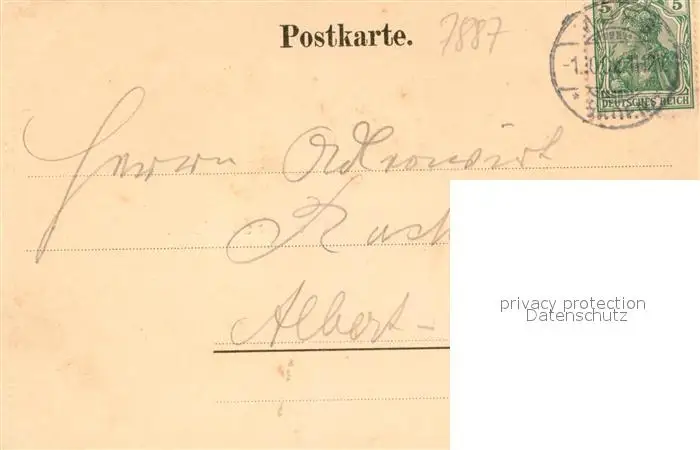 Postkarte. 7887
5 5
DEUTSCHES REICH
Herrn Adlerwirt
Albert-
privacy protection
Datenschutz